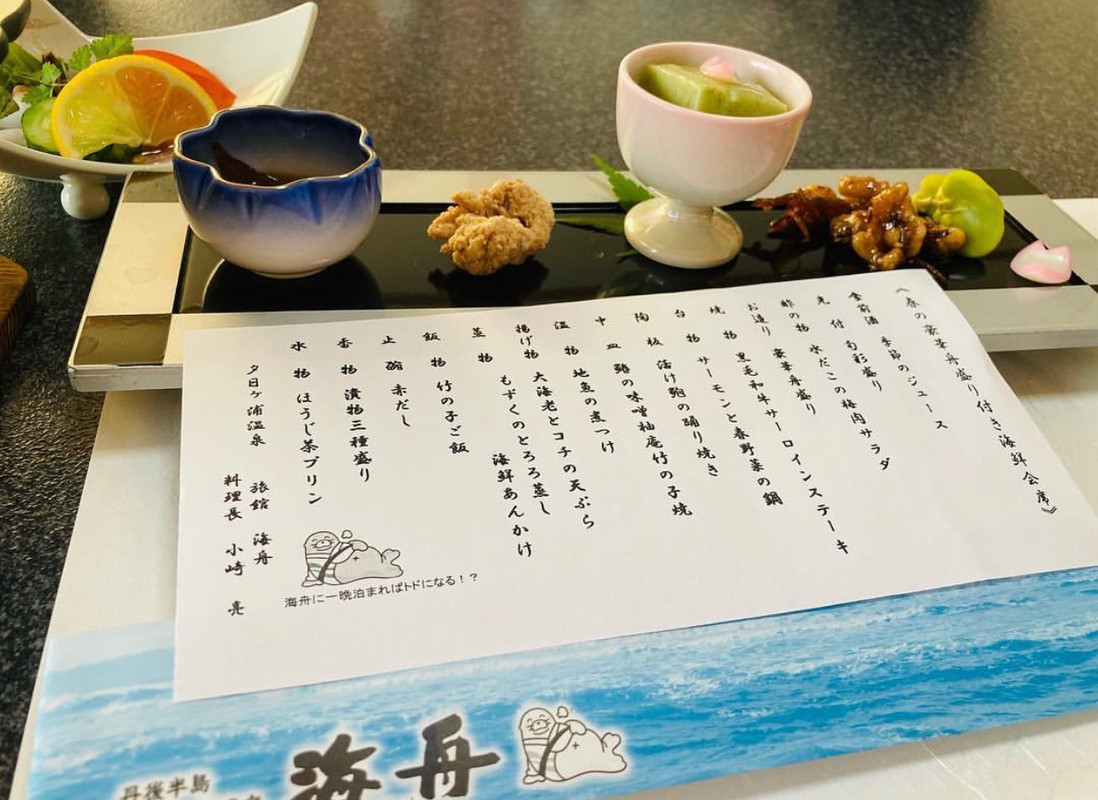 《春の豪華舟盛り付き海鮮会席》
食前酒 季節のジュース
先付 旬彩盛り
酢の物 水だこの梅肉サラダ
お造り 豪華舟盛り
焼物 黒毛和牛サーロインステーキ
台物 サーモンと春野菜の鍋
陶板 活け鮑の踊り焼き
中皿 鰆の味噌柚庵竹の子焼
温物 地魚の煮つけ
揚げ物 大海老とコチの天ぷら
蒸物 もずくのとろろ蒸し
海鮮あんかけ
飯物 竹の子ご飯
止椀 赤だし
香物 漬物三種盛り
水物 ほうじ茶プリン
夕日ヶ浦温泉 旅館 海舟
料理長 小崎 亮
海舟に一晩泊まればトドになる！？
丹後半島
海舟